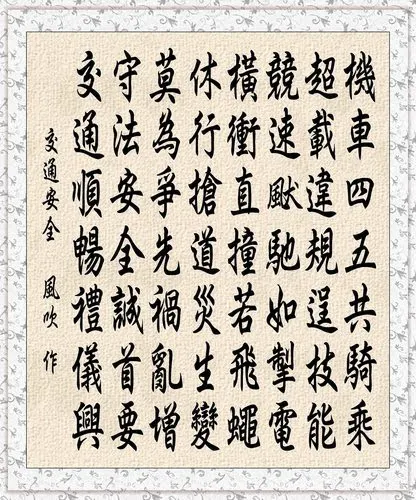 機車四五共騎乘
超載違規逞技能
競速飆馳如掣電
橫衝直撞若飛蠅
休行搶道災生變
莫為爭先禍亂增
守法安全誠首要
交通順暢禮儀興
交通安全 風吹 作